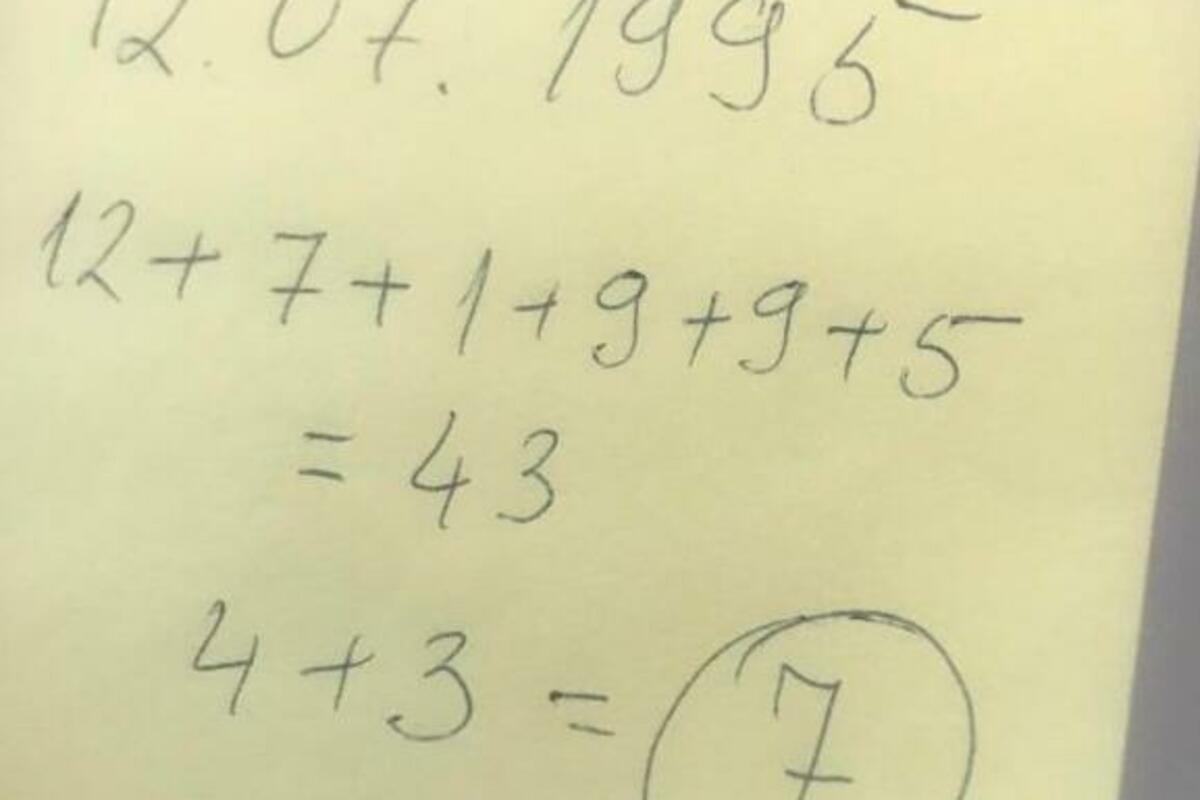 12.07.1995
12+7+1+9+9+5
=43
4+3=7